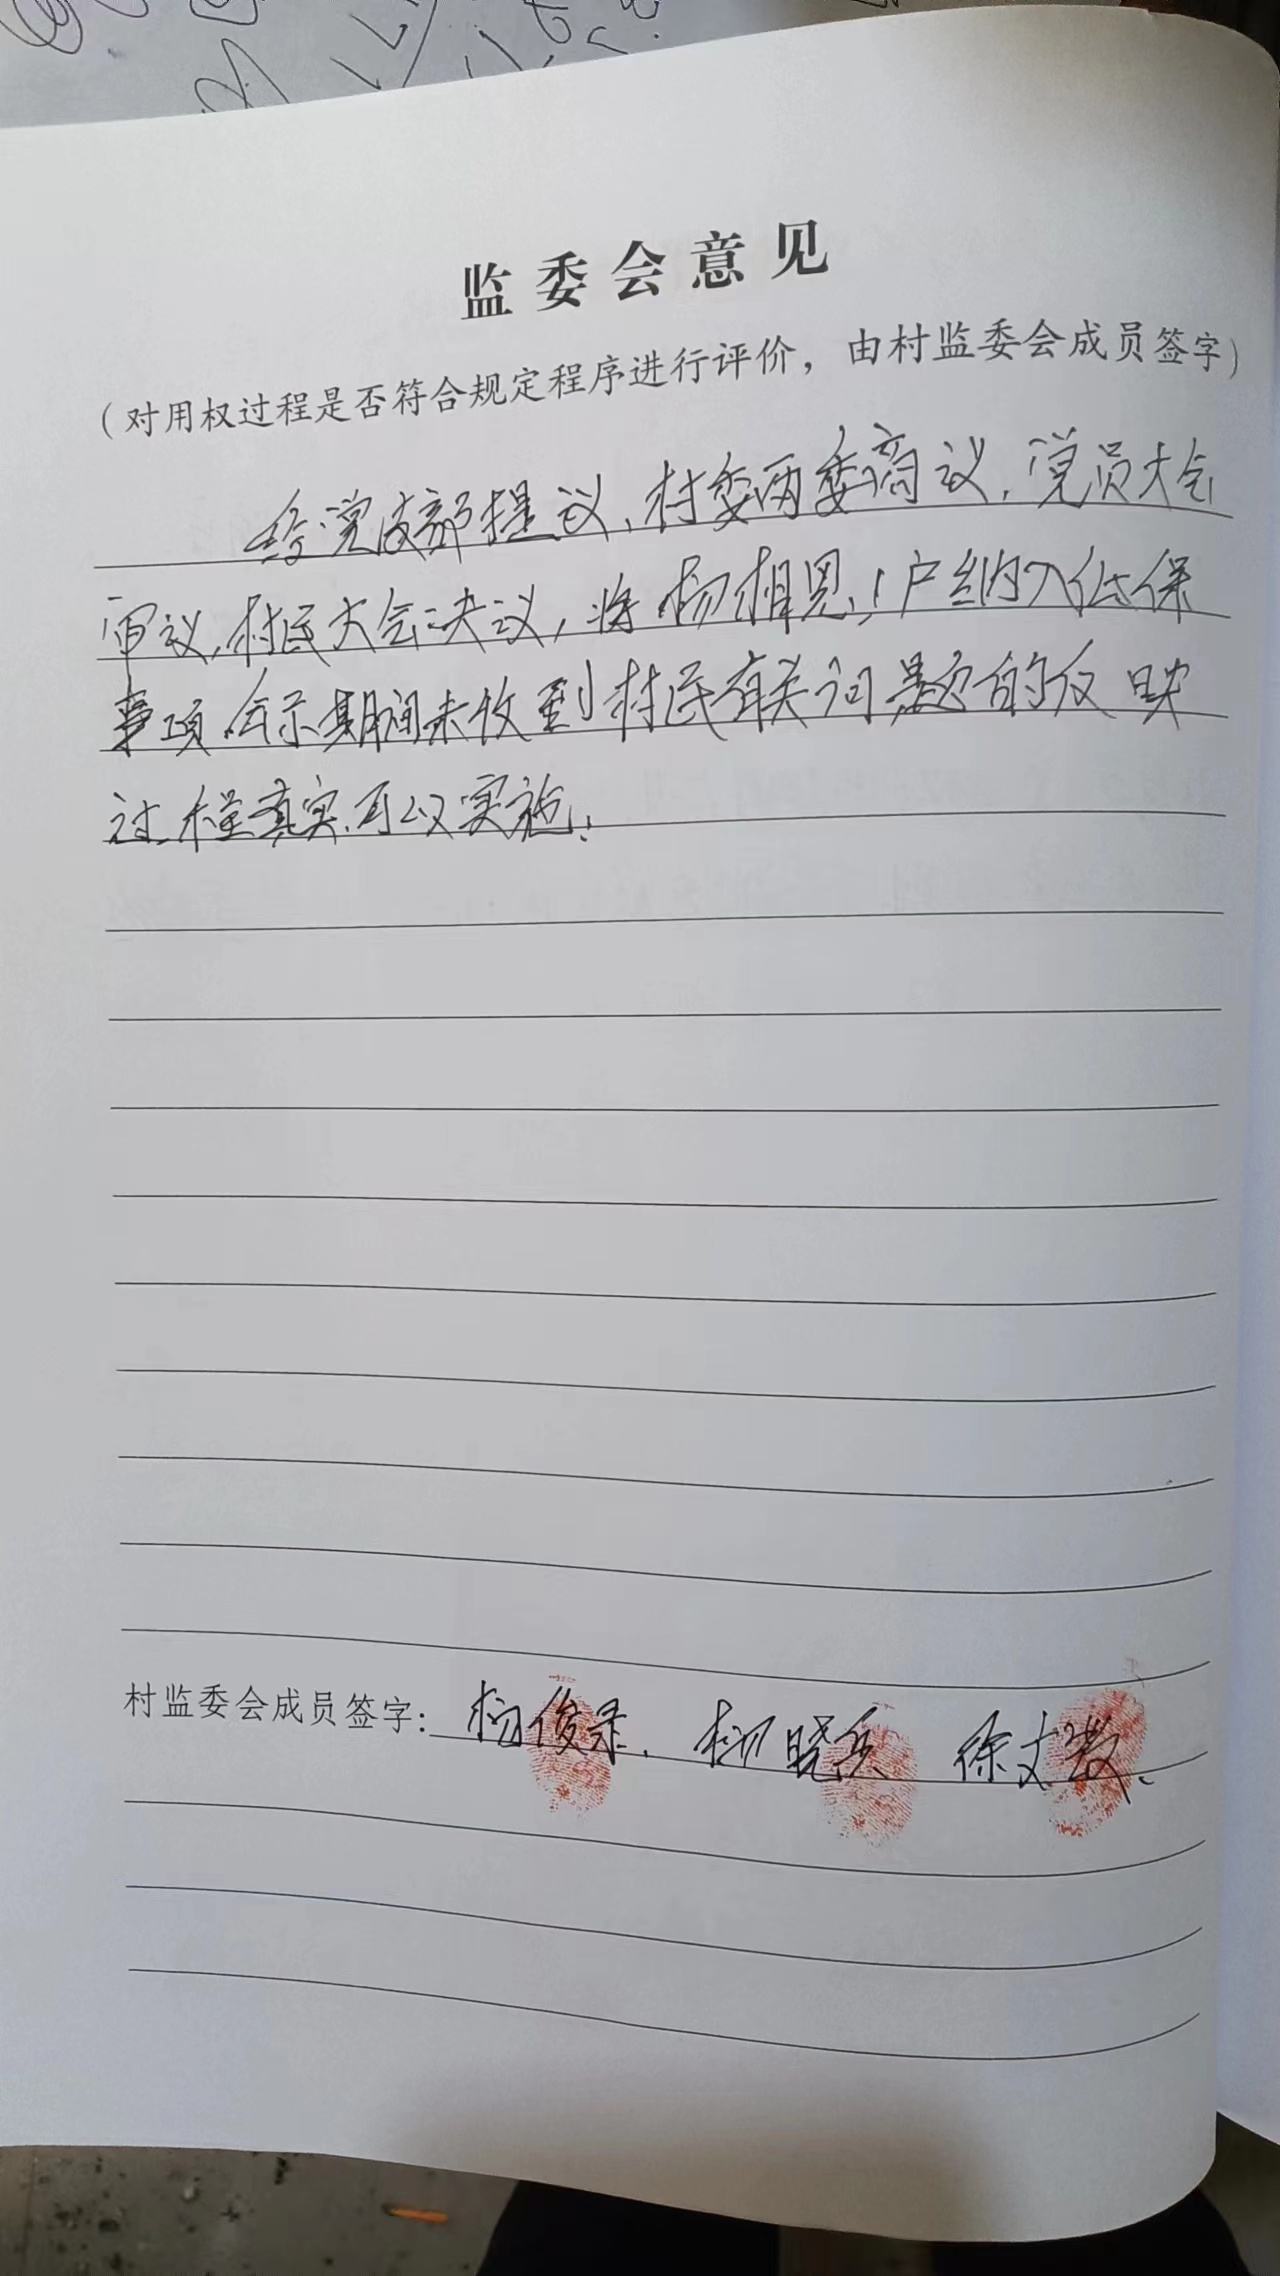 监委会意见
（对用权过程是否符合规定程序进行评价，由村监委会成员签字）
经党支部提议、村委两委商议、党员大会
审议、村民大会决议，将杨相恩1户纳入低保
事项，公示期间未收到村民有关问题的反映
过程真实、可以实施。
村监委会成员签字：杨俊录、柳晓兵 徐文